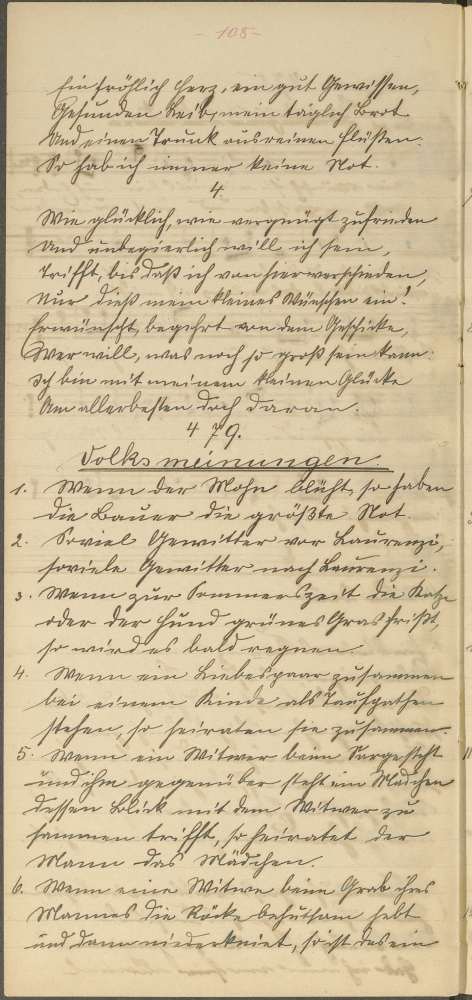 - 108 -
Ein fröhlich Herz, ein gut Gewissen,
Gesunden Leib, mein täglich Brot
Und einen Trunk aus reinen Flüssen.
So hab ich immer keine Not.
4
Wie glücklich, wie vergnügt zufrieden
Und unbegierlich will ich sein,
Trifft, bis daß ich von hier verschieden,
Nur dieß mein kleines Wünschen ein!
Erwünscht, begehrt von dem Geschicke,
Wer will, was noch so groß sein kann:
Ich bin mit meinem kleinen Glücke
Am allerbesten doch daran.
479.
Volksmeinungen
1. Wenn der Mohn blüht, so haben
die Bauer die größte Not.
2. Soviel Gewitter vor Laurenzi,
soviele Gewitter nach Laurenzi.
3. Wenn zur Sommerszeit die Katze
oder der Hund grünes Gras frißt,
so wird es bald regnen.
4. Wenn ein Liebespaar zusammen
bei einem Kinde als Taufpathen
stehen, so heiraten sie zusammen.
5. Wenn ein Witwer beim Sarge steht
und ihm gegenüber steht ein Mädchen
dessen Blick mit dem Witwer zu
sammen trifft, so heiratet der
Mann das Mädchen.
6. Wenn eine Witwe beim Grab ihres
Mannes die Röcke behutsam hebt
und dann niederkniet, so ist das ein